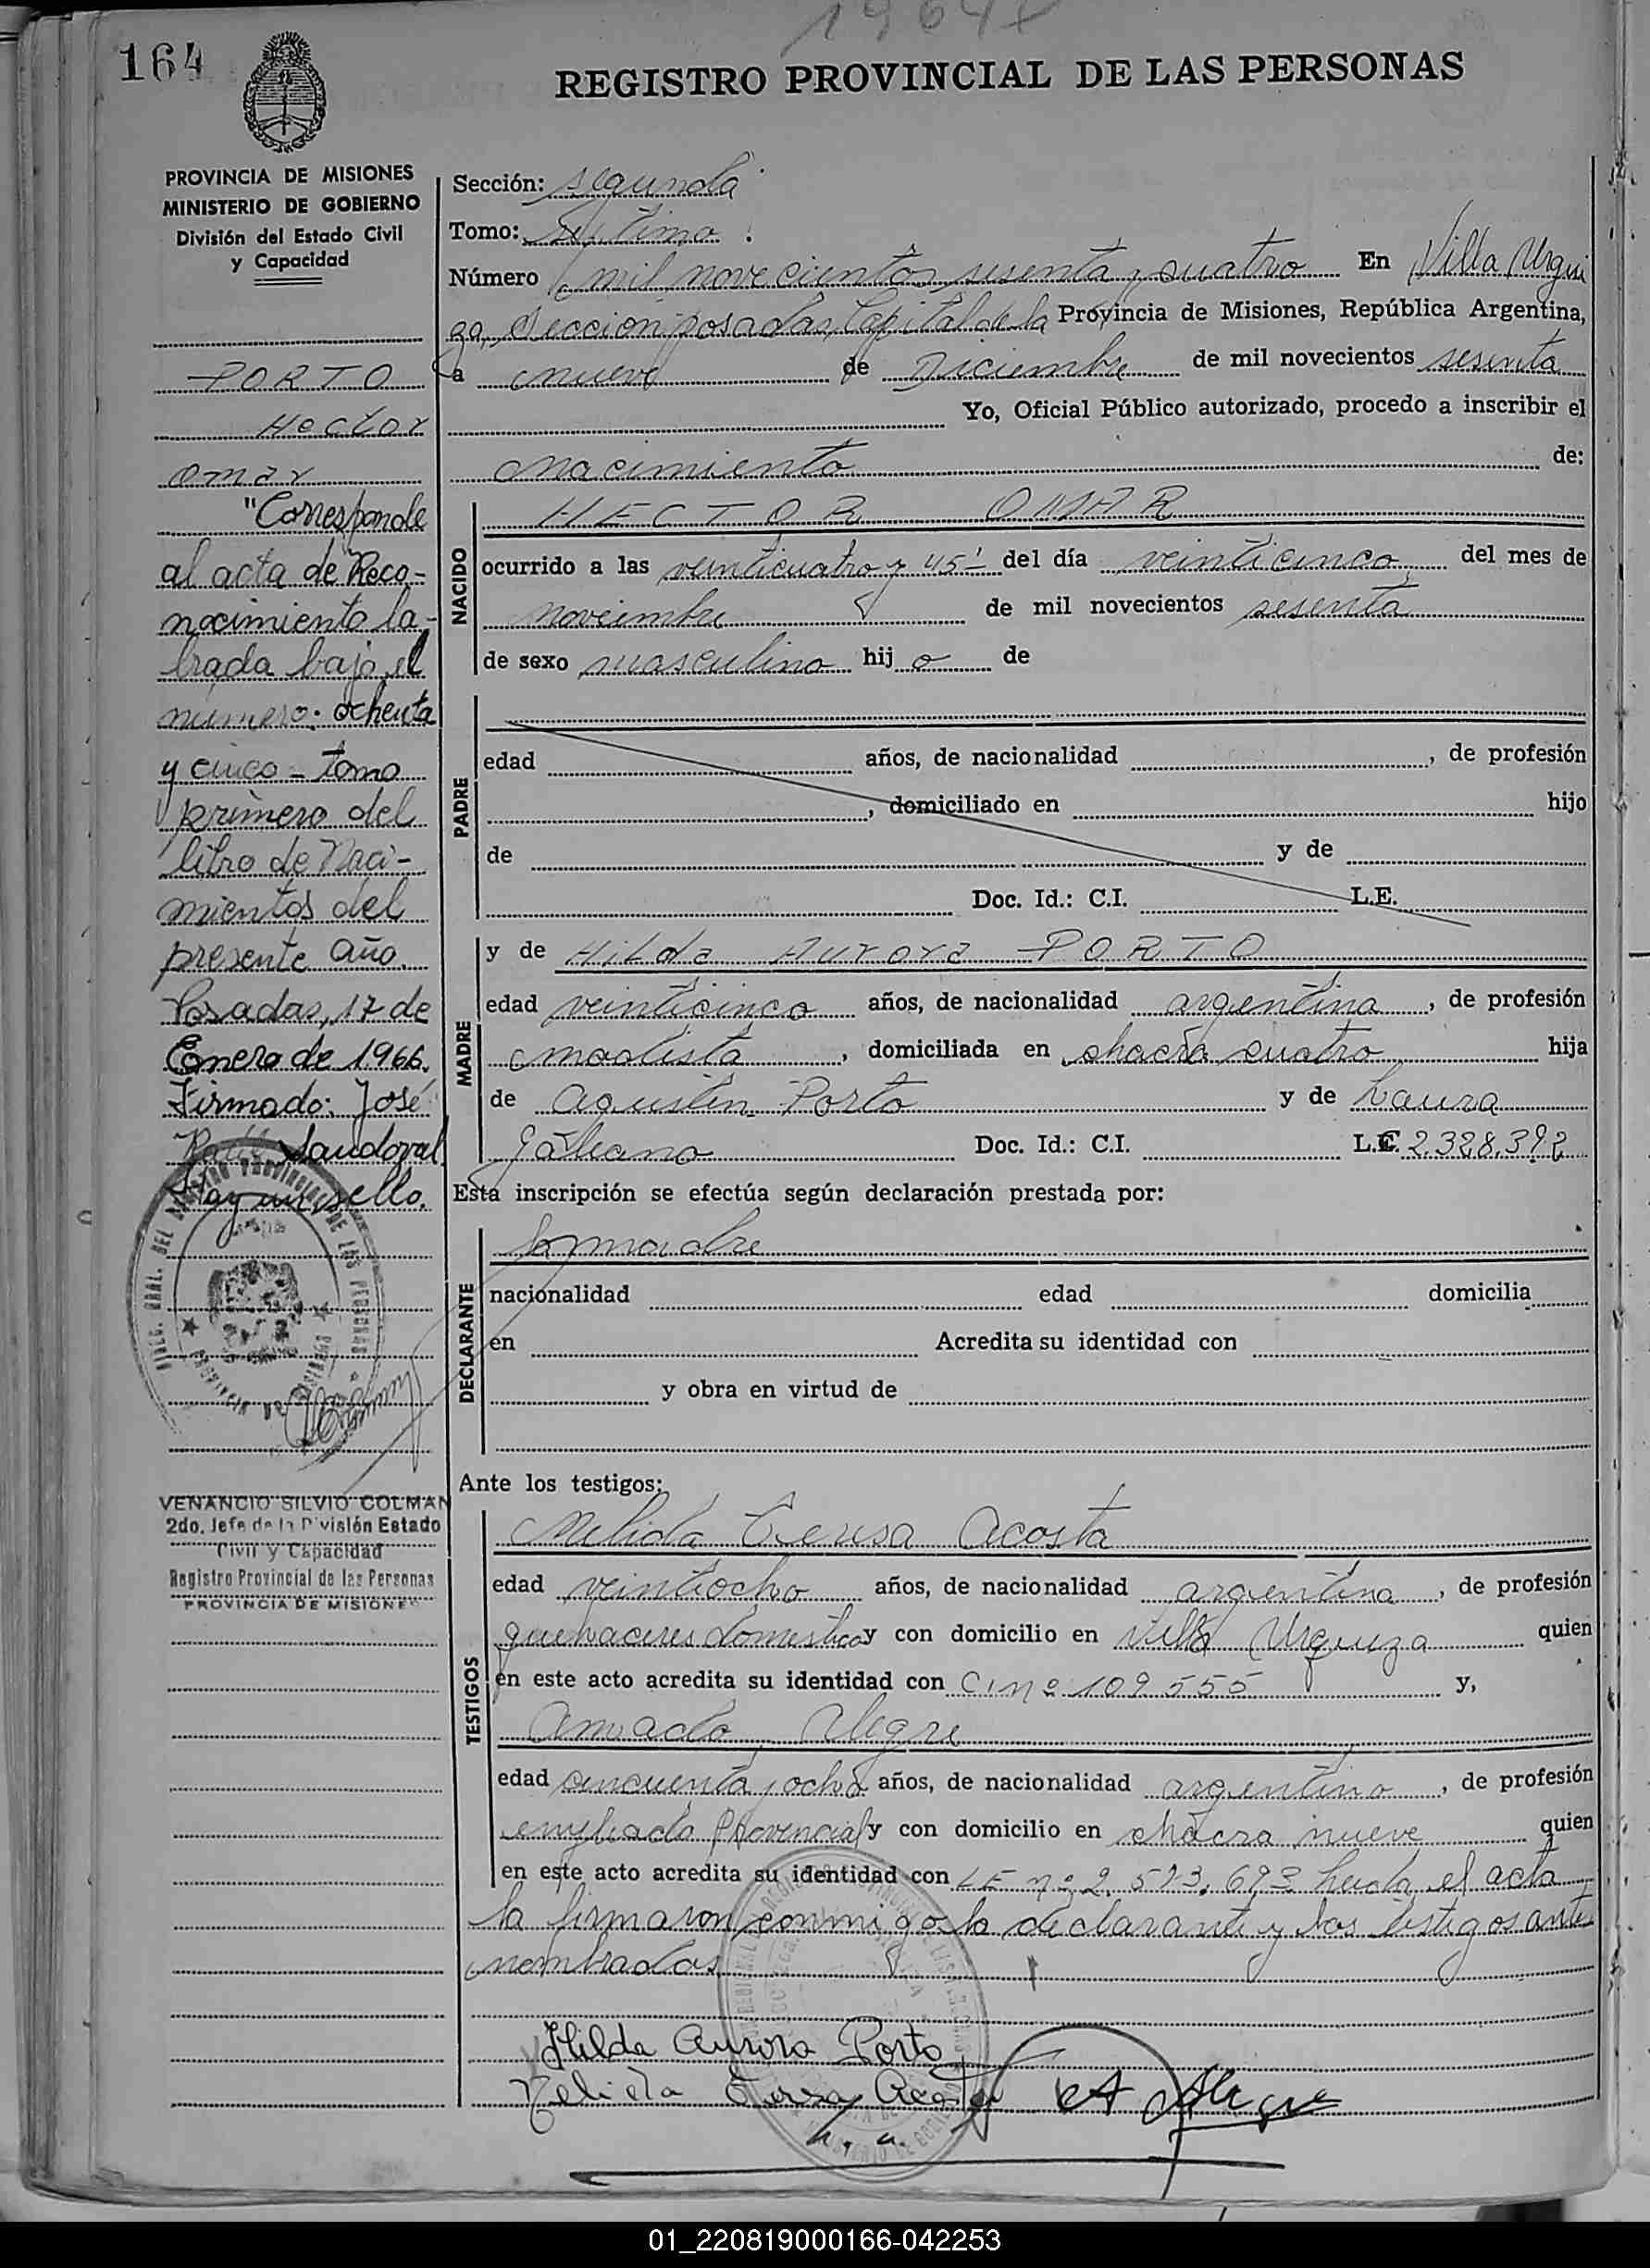 1964
164
REGISTRO PROVINCIAL DE LAS PERSONAS
PROVINCIA DE MISIONES
MINISTERIO DE GOBIERNO
División del Estado Civil
y Capacidad
PORTO
Hector
Omar
"Corresponde
al acta de Reco-
nocimiento la-
brada bajo el
número: ochenta
y cinco - tomo
primero del
libro de Naci-
mientos del
presente año.
Posadas, 17 de
Enero de 1966.
Firmado: José
Raúl Sandoval
Hay un sello.
VENANCIO SILVIO COLMAN
2do. Jefe de la División Estado
Civil y Capacidad
Registro Provincial de las Personas
PROVINCIA DE MISIONES
Sección: segunda
Tomo: Septimo
Número mil novecientos sesenta y cuatro En Villa Urqui
za, Seccion posadas, Capital de la Provincia de Misiones, República Argentina,
a nueve de Diciembre de mil novecientos sesenta
Yo, Oficial Público autorizado, procedo a inscribir el
nacimiento de:
NACIDO
HECTOR OMAR
ocurrido a las veinticuatro y 45' del día veinticinco del mes de
noviembre de mil novecientos sesenta
de sexo masculino hijo de
PADRE
edad años, de nacionalidad , de profesión
, domiciliado en hijo
de y de
Doc. Id.: C.I. L.E.
MADRE
y de Hilda Aurora PORTO
edad veinticinco años, de nacionalidad argentina, de profesión
modista, domiciliada en chacra cuatro hija
de Agustin Porto y de Laura
Galeano Doc. Id.: C.I. L.C. 2.328.392
Esta inscripción se efectúa según declaración prestada por:
DECLARANTE
La madre
nacionalidad edad domicilia
en Acredita su identidad con
y obra en virtud de
Ante los testigos:
TESTIGOS
Nelida Teresa Acosta
edad veintiocho años, de nacionalidad argentina, de profesión
quehaceres domesticos y con domicilio en Villa Urquiza quien
en este acto acredita su identidad con CI nº 109.555 y,
Amado Alegre
edad cincuenta y ocho años, de nacionalidad argentino, de profesión
empleado Provincial y con domicilio en chacra nueve quien
en este acto acredita su identidad con LE nº 2.523.693 leida el acta
la firmaron conmigo la declarante y los testigos ante
nombrados
Hilda Aurora Porto
Nelida Teresa Acosta A Alegre
01_220819000166-042253